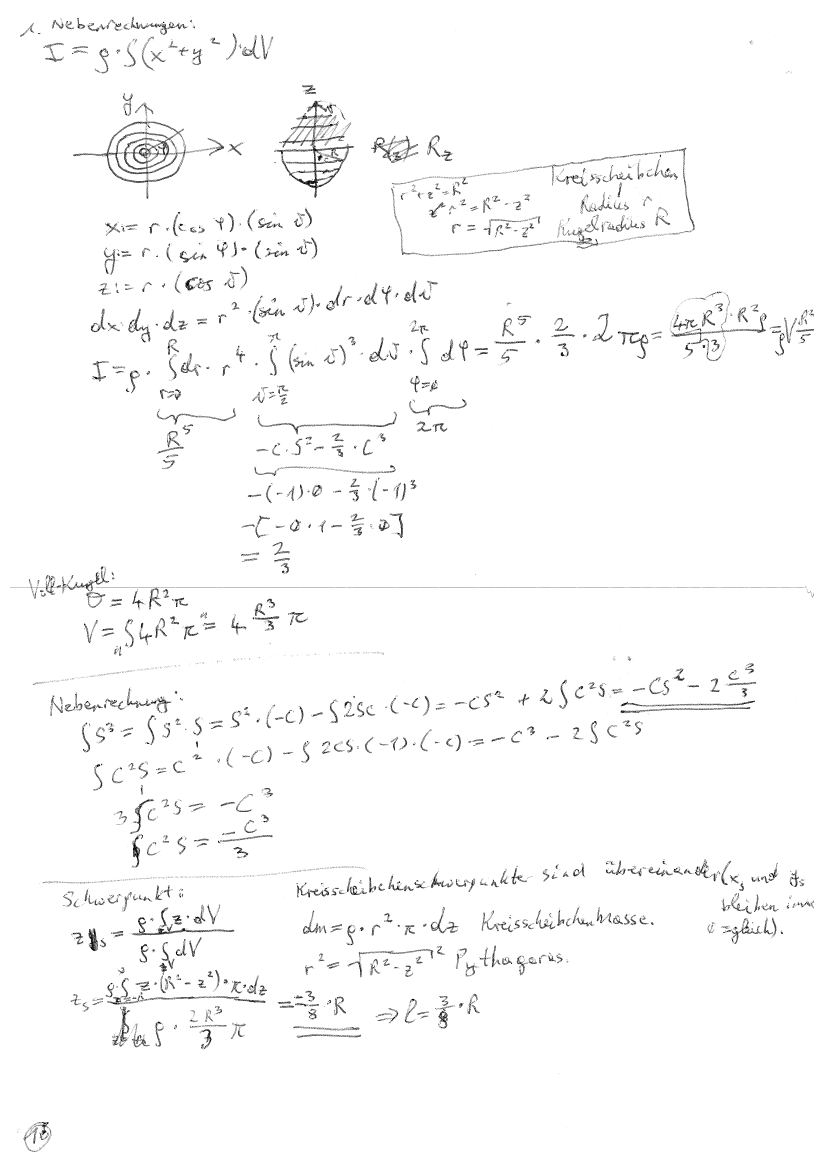 1. Nebenrechnungen:
I = ρ·∫(x²+y²)·dV
y
x
z
R_z
r²+z²=R²
r²=R²-z²
r=√(R²-z²)
Kreisscheibchen
Radius r
Kugelradius R
x:= r·(cos φ)·(sin ϑ)
y:= r·(sin φ)·(sin ϑ)
z:= r·(cos ϑ)
dx·dy·dz = r²·(sin ϑ)·dr·dφ·dϑ
I = ρ· ∫_{r=0}^{R} dr·r⁴· ∫_{ϑ=π/2}^{π} (sin ϑ)³·dϑ· ∫_{φ=0}^{2π} dφ = R⁵/5 · 2/3 · 2πρ = (4πR³·R²ρ)/(5·3) = ρV R²/5
R⁵/5
-C·S²-2/3·C³
2π
-(-1)·0 - 2/3·(-1)³
-[-0·1-2/3·0]
= 2/3
Voll-Kugel:
O = 4R²π
V = ∫4R²π = 4 R³/3 π
Nebenrechnung:
∫S³ = ∫S²·S = S²·(-C) - ∫2SC·(-C) = -CS² + 2∫C²S = -CS² - 2 C³/3
∫C²S = C²·(-C) - ∫2CS·(-1)·(-C) = -C³ - 2∫C²S
3∫C²S = -C³
∫C²S = -C³/3
Schwerpunkt:
z_s = (ρ·∫z·dV)/(ρ·∫dV)
Kreisscheibchenschwerpunkte sind übereinander (x_s und y_s
bleiben
=gleich).
dm = ρ·r²·π·dz Kreisscheibchenmasse.
r² = √(R²-z²)² Pythagoras.
z_s = (ρ·∫z·(R²-z²)·π·dz)/(ρ·2R³/3 π) = -3/8·R ⇒ l = 3/8·R